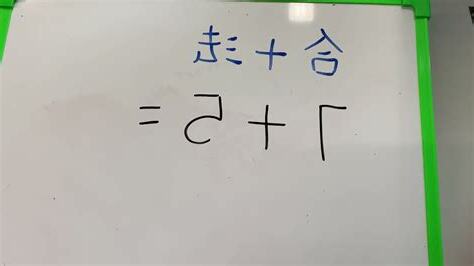 合十法
7+5=